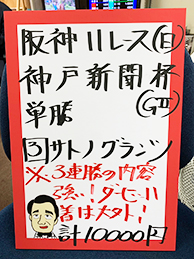 阪神11レース(日)
神戸新聞杯
(GⅡ)
単勝
③サトノグランツ
※3連勝の内容
強い!ダービー11
着は大外!
計10000円